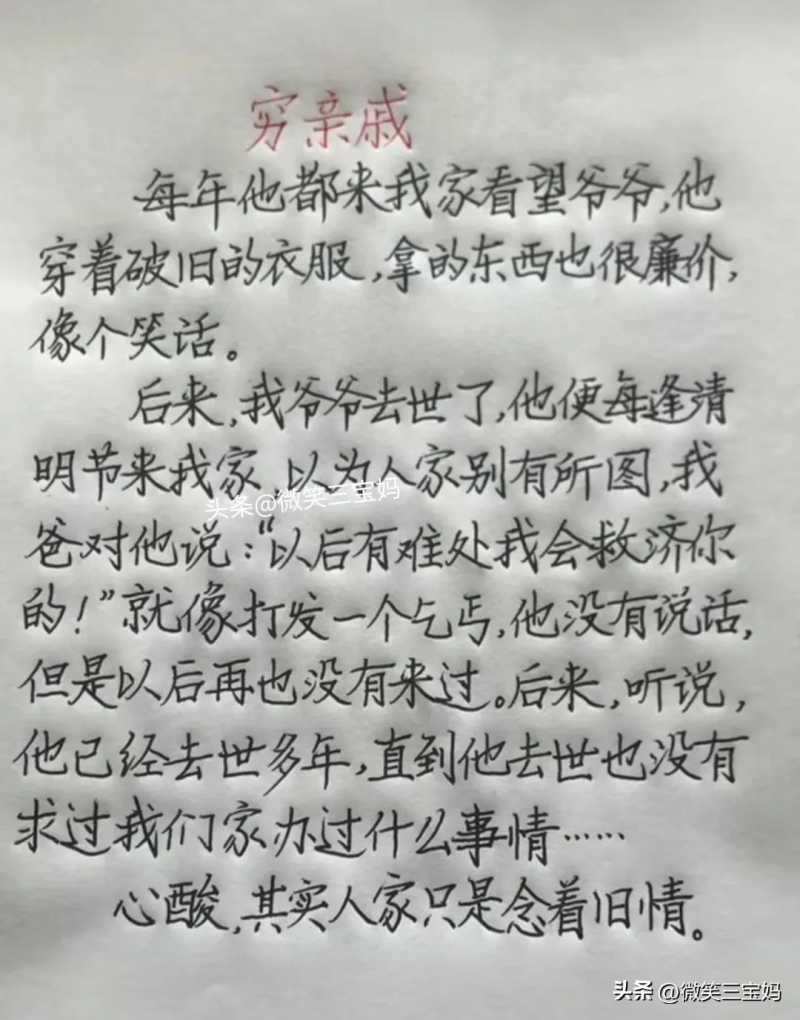 穷亲戚
每年他都来我家看望爷爷,他
穿着破旧的衣服,拿的东西也很廉价,
像个笑话。
后来,我爷爷去世了,他便每逢清
明节来我家,以为人家别有所图,我
头条@微笑三宝妈
爸对他说:“以后有难处我会救济你
的!”就像打发一个乞丐,他没有说话,
但是以后再也没有来过。后来,听说,
他已经去世多年,直到他去世也没有
求过我们家办过什么事情……
心酸,其实人家只是念着旧情。
头条 @微笑三宝妈